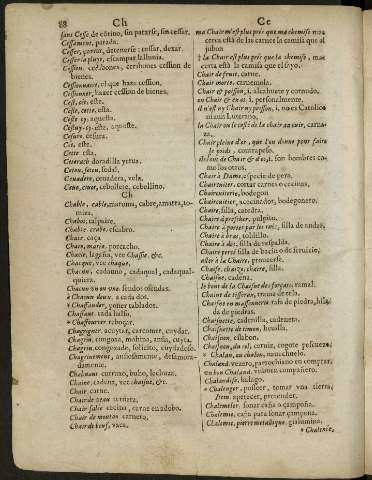 88 Ch
Ce
sans Cesse de cõtino, sin pararse, sin cessar.
Cessament, parada.
Cesser, parar, detenerse: cessar, dexar.
Cesser la pluye, escampar la lluvia.
Cession, cediciones, cerchiones cession de
bienes.
Cessionnaire, el que haze cession.
Cessionner, hazer cession de bienes.
Cest, cet, este.
Ceste, cette, esta.
Ceste cy, aquesta.
Cestuy-cy, este, aqueste.
Cesure, cesura.
Cet, este.
Cette esta.
Ceterach doradilla yerua.
Ceton, seton, sedal.
Ceuadere, ceuadera, vela.
Ceue, ciue, cebollete, cebollino.
Ch
Chable, cable, maroma, cabre, amarra, to-
miza.
Chabot,
Chabre, crabe, escabro.
Chair, caça
Chace, marja, porcacho.
Chacie, lagaña, vee Chassie, &c.
Chacque, vee chaque.
Chacun, cadauno, cadaqual, cadaqual-
quiera.
Chacun en on que
à Chacun deux, a cada dos.
à Chaffauder, poner tablados.
Chaffaut, cada halso,
* Chaffourrer rebogar.
Chagrigner, acuytar, carcomer, cuydar.
Chagrin, congoxa, mohina, ansia, cuyta.
Chagrin, congoxado, solicito, cuydadoso.
Chagrinement, ansiosamente, desamora-
damente.
Chahuant curuxo, buho, lechuza.
Chaine, cadena, vee chaisne, &c.
Chair carne.
Chair de veau ternera.
Chair salée cecina, carne en adobo.
Chair de mouton carnero.
Chair de beuf, vaca.
ma Chair m'est plus près que ma chemise mas
cerca está de las carnes la camisa que al
jubon
† la Chair est plus près que la chemise, mas
cerca està la camisa que el sayo.
Chair de fruit, carne.
Chair morte, carnaza.
Chair & poisson, i, alcahuete y cornudo.
en Chair & en os, i, personalmente.
il n'est ny Chair ny poisson, i, no es Catolico
ni aun Luterano,
la Chair ou le costé de la chair au cuir, carna-
za.
Chair pleine d'or, que l'on donne pour faire
le poids, contrapeso.
ils sont de Chair & d'os, i. son hombres co-
mo los otros.
Chair à Dame, especia de pera.
Chaircuiter, cortar carnes o cecinas,
Chaircuiterie, bodegon.
Chaircuitier, accecinador, bodegonero,
Chaire, silla, catedra.
Chaire à prescher, pulpito.
Chaire à porter par les ruës, silla de andas,
Chaire à bras, toldillo.
Chaire à dos, silla de respalda.
Chaire percé silla de bacin o de seruicio,
aller à la Chaire, proueerse.
Chaise, chaize, chaire, silla.
Chaisne, cadena.
le bout de la Chaisne des forçats ramal.
Chaine de tisseran, trama de tela.
Chaisne en massonnerie, rafa de piedra, hila-
da de piedras.
Chaisnette, cadenilla, cadeneta.
Chaisnette de timon, heuilla.
Chaisnon, eslabon.
Chaisnon, du col, ceruiz, cogote pescueço.
* Chalan, ou chalon, nauechuelo.
Chaland, vezero, parrochiano en comprar.
un bon Chaland, vn buen compañero.
Chalandise, halago.
* Chalenger, posseer, tomar vna tierra;
Item, apetecer, pretender.
Chalemeler, sonar caña o campoña.
Chalemie, caña para sonar çampona.
Chalemie, pierre metallique, gialumina.
* Chalence,